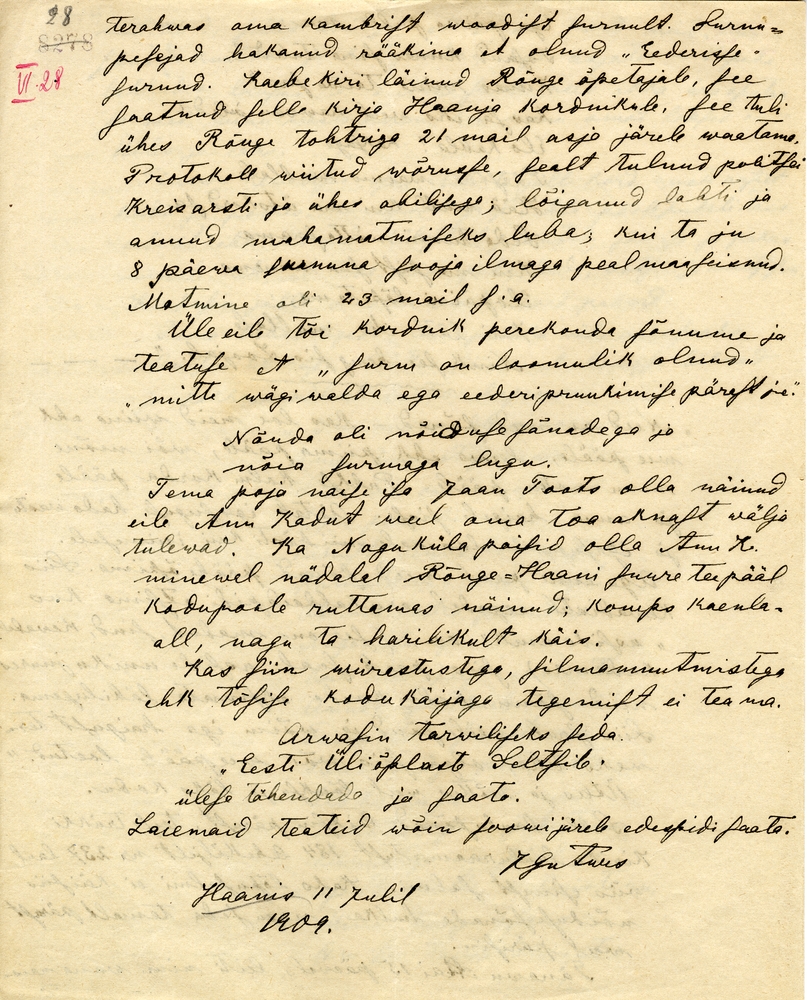 28
8278
VI·28
terahwas oma kambrist woodist surnult. Surnu=
pesejad hakanud rääkima et olnud „Eederisse
surnud. Kaebekiri läinud Rõuge õpetajale, see
saatnud selle kirja Haanja kordnikule, see tuli
ühes Rõuge tohtriga 21 mail asja järele waatama,
Protokoll wiitud wõrusse, sealt tulnud politsei
Kreisarsti ja ühes abilisega; lõiganud lahti ja
annud mahamatmiseks luba; kui ta ju
8 päewa surnuna sooja ilmaga peal maa seisnud.
Matmine oli 23 mail s. a.
Üleeile tõi kordnik perekonda sõnume ja
teatuse et „surm on loomulik olnud„
„mitte wägiwalda ega eederi pruukimise pärast j.e."
Nõnda oli nõiduse sõnadega ja
nõia surmaga lugu.
Tema poja naise isa Jaan Toots olla näinud
eile Ann Kadut weel oma toa aknast wälja
tulewad. Ka Nogu küla poisid olla Ann K.
minewel nädalal Rõuge=Haani suure tee pääl
kodupoole ruttamas näinud; komps kaenla-
all, nagu ta harilikult käis.
Kas siin wiirastustega, silmamuutmistega
ehk tõsise kodukäijaga tegemist ei tea ma.
Arwasin tarwiliseks seda
„Eesti Üliõplaste Seltsile.
ülesse tähendada ja saata.
Laiemaid teateid wõin soowi järele edespidi saata.
J Gutves
Haanis 11 Julil
1909.